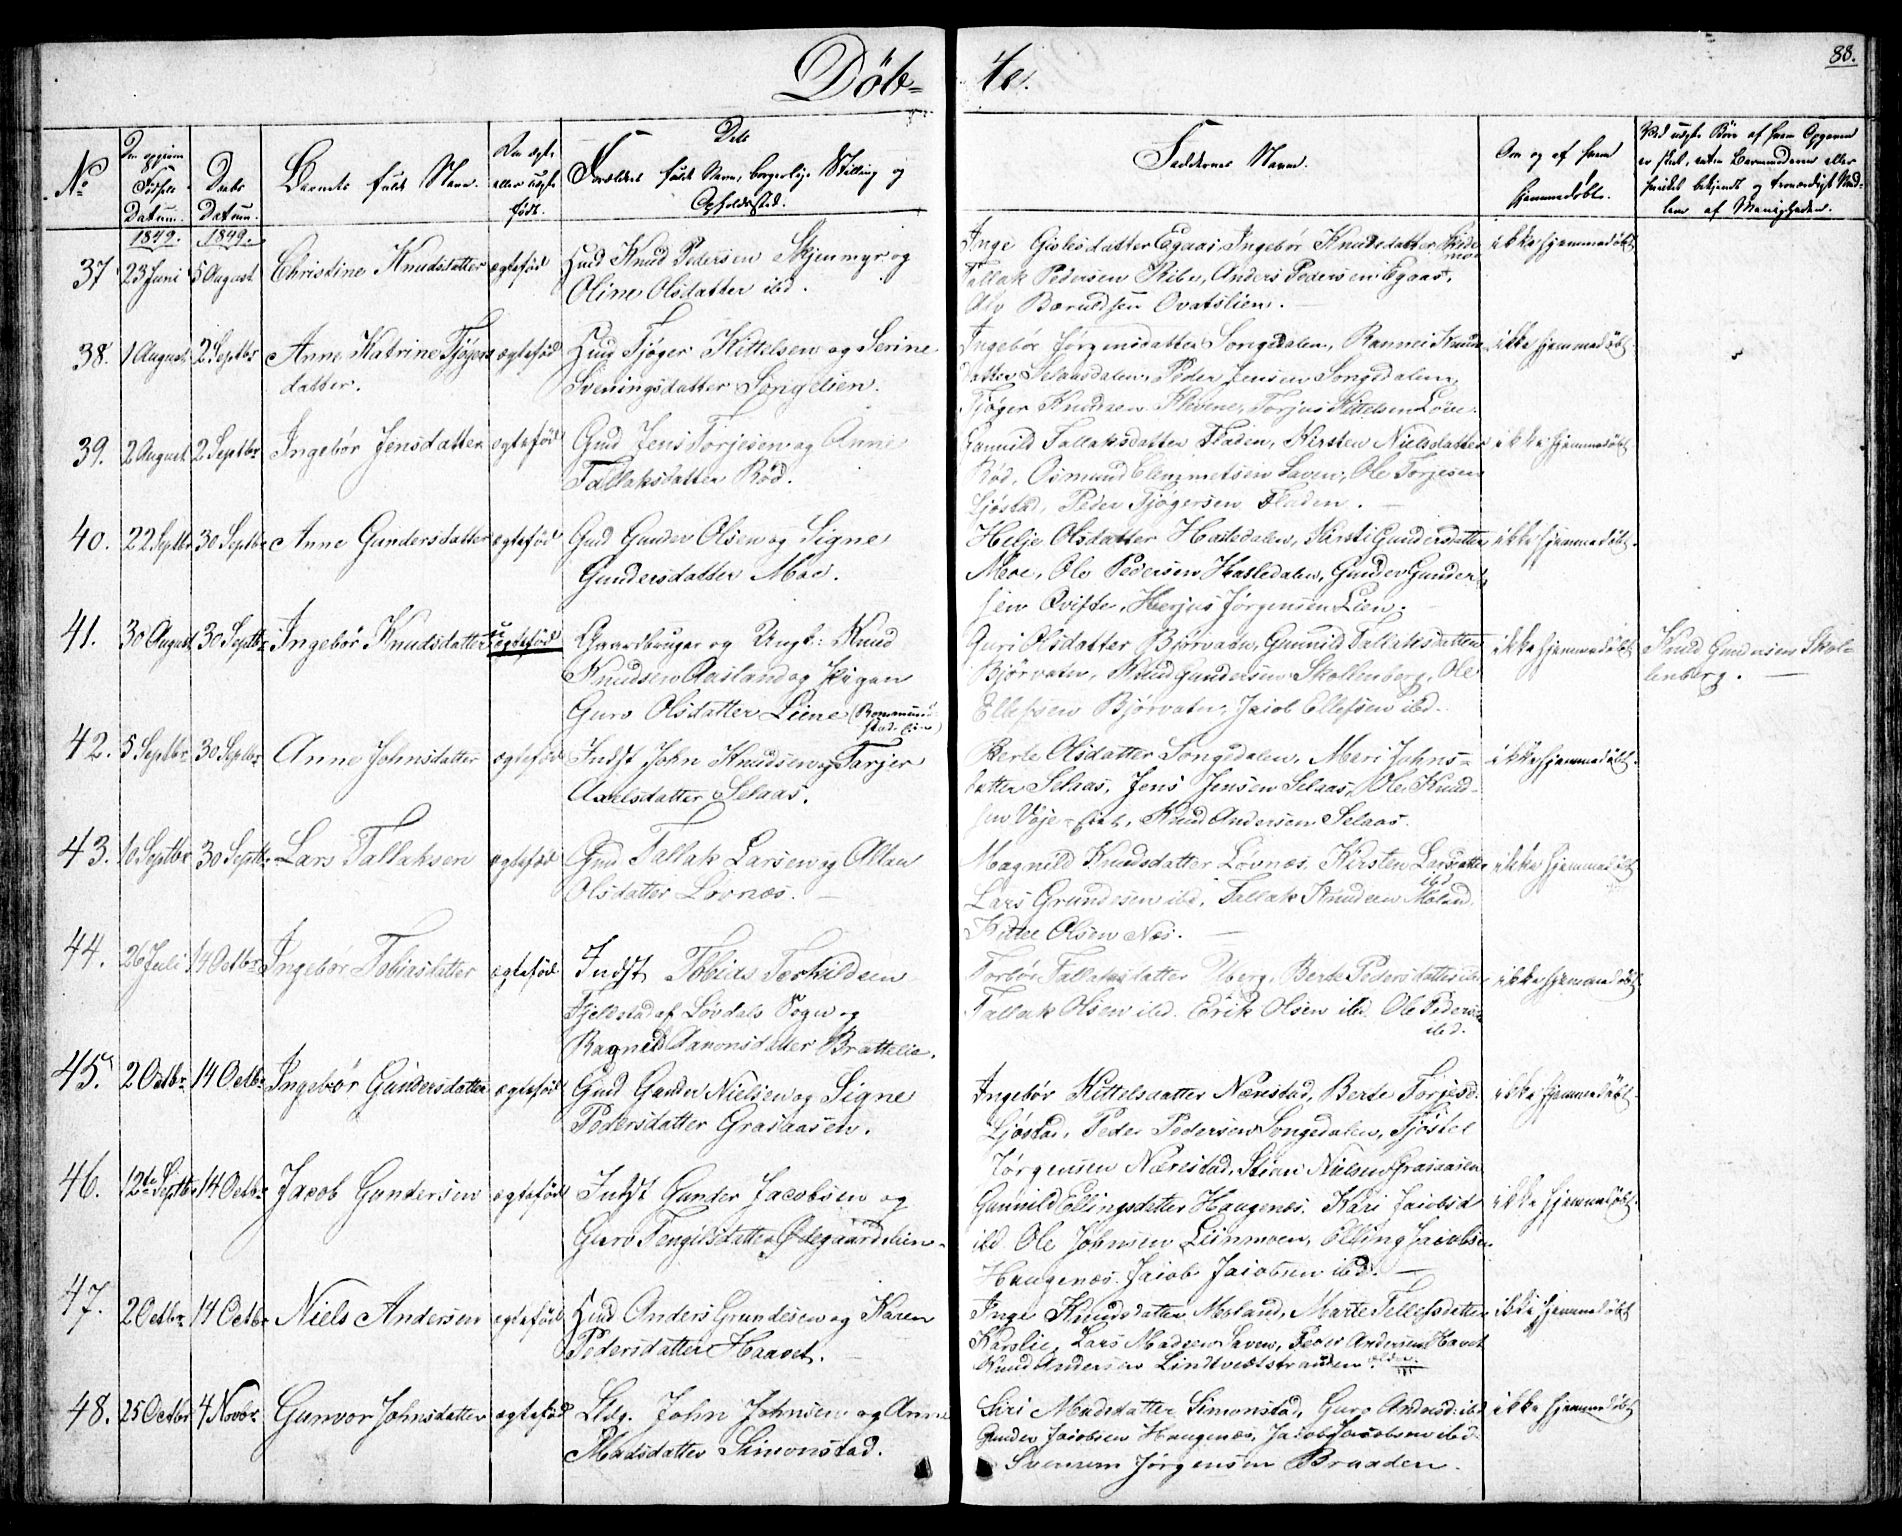 88.
Døb-
te.
No
Den opgivne Fødsels Datum.
Daabs Datum.
Barnets fulde Navn.
Om ægte eller uægte født.
Dets Forældres fulde Navn, borgerlige Stilling og Opholdssted.
Faddernes Navne.
Om og af hvem hjemmedøbt.
1849. 1849.
37 23 Juni 5 August. Christine Knudsdatter ægtefød Huud Knud Pedersen Skjenmyr og
Oline Olsdatter ibd.
Inge Gislesdatter Egaas, Ingebør Knudsdatter
Tallak Pedersen Ribe, Anders Pedersen Egaas,
Ole Ovatslien.
ikke hjemmedøbt
38. 1 August. 2 Septbr Anne Katrine Tjøgers- ægtefød Huud Tjøger Kittelsen og Serine
datter. Sveningsdatter Songelien.
Ingebør Jørgensdatter Songedalen, Knuds-
datter Selaasdalen, Peder Jensen Songedalen,
Tjøger Knudsen Klevene, Torjus Kittelsen
ikke hjemmedøbt
39. 2 August. 2 Septbr Ingebør Jensdatter ægtefød Gmd Jens Torjesen og Anne
Tallaksdatter Rød.
Gunnild Tallaksdatter Fladen, Kirsten Nielsdatter
Rød, Osmund Clemmetsen Laven, Ole Torjesen
Ljøstad, Peder Tjøgersen Fladen.
ikke hjemmedøbt
40. 22 Septbr 30 Septbr Anne Gundersdatter ægtefød Gmd Gunder Olsen og Signe
Gundersdatter Moe.
Helje Olsdatter Hasledalen, Kirsti Gundersdatter
Moe, Ole Pedersen Hasledalen, Gunder Gunder-
sen Qvifte, Herjus Jørgensen Lien.
ikke hjemmedøbt.
41. 30 August 30 Septbr Ingebør Knudsdatter uægtefød Gaardbruger og Ungk: Knud
Knudsen Aasland og Pigen
Guro Olsdatter Liene
Guri Olsdatter Bjørvatn, Gunnild Tallaksdatter
Bjørvatn, Knud Gundersen Skollenberg, Ole
Ellefsen Bjørvatn, Jacob Ellefsen ibd.
ikke hjemmedøbt
Knud Gundersen Skol-
lenberg.
42. 5 Septbr 30 Septbr Anne Johnsdatter ægtefød Indst John Knudsen og Tarjer
Axelsdatter Selaas.
Berte Olsdatter Songedalen, Mari Johns-
datter Selaas, Jens Jensen Selaas, Ole Knud-
sen Knud Andersen Selaas.
ikke hjemmedøbt.
43. 10 Septbr 30 Septbr Lars Tallaksen ægtefød Gmd Tallak Larsen og
Olsdatter Lovnæs.
Magnild Knudsdatter Løvnæs, Kirsten Larsdatter
ibd
Lars Grundesen ibd, Tallak Knudsen Moland.
Kittel Olsen Næs.
ikke hjemmedøbt
44. 26 Juli 14 Octbr Ingebør Tobiasdatter ægtefød Indst Tobias Terkildsen
Fjeldstad af Løvdals Sogn og
Ragnild Aanonsdatter Brattelie.
Torbør Tallaksdatter Uberg, Berte Pedersdatter ibd
Tallak Olsen ibd. Erik Olsen ibd. Ole Pedersen
ibd.
ikke hjemmedøbt
45. 2 Octbr 14 Octbr Ingebør Gundersdatter ægtefød Gmd Gunder Nielsen og Signe
Pedersdatter Grasaasen.
Ingebør Kittelsdatter Nærestad, Berte Torjesd.
Ljøstad, Peder Pedersen Songedalen, Tjøstel
Jørgensen Nærestad, Stian Nielsen Grasaasen
ikke hjemmedøbt.
46. 12te Septbr 14 Octbr Jacob Gundersen ægtefød Indst Gunder Jacobsen og
Guro Tengilsdatter Ødegaardslien.
Gunnild Ellingsdatter Haugenæs, Kari Jacobsd
ibd Ole Johnsen Liinmoen, Elling Jacobsen
Haugenæs. Jacob Jacobsen ibd.
ikke hjemmedøbt.
47. 2 Octbr 14 Octbr Niels Andersen ægtefød Huud Anders Grundesen og Karen
Pedersdatter Haavet.
Inge Knudsdatter Moland, Marte Tellefsdatter
Karslie, Lars Madsen Laven, Peder Andersen Havet
Knud Andersen Lindtveitstranden
ikke hjemmedøbt
48. 25 Octbr 4 Novbr Gunvor Johnsdatter ægtefød John Johnsen og Anne
Madsdatter Simonstad.
Siri Madsdatter Simonstad, Guro Andersd: ibd
Gunder Jacobsen Haugenæs, Jacob Jacobsen ibd.
Jørgensen Braaden.
ikke hjemmedøbt